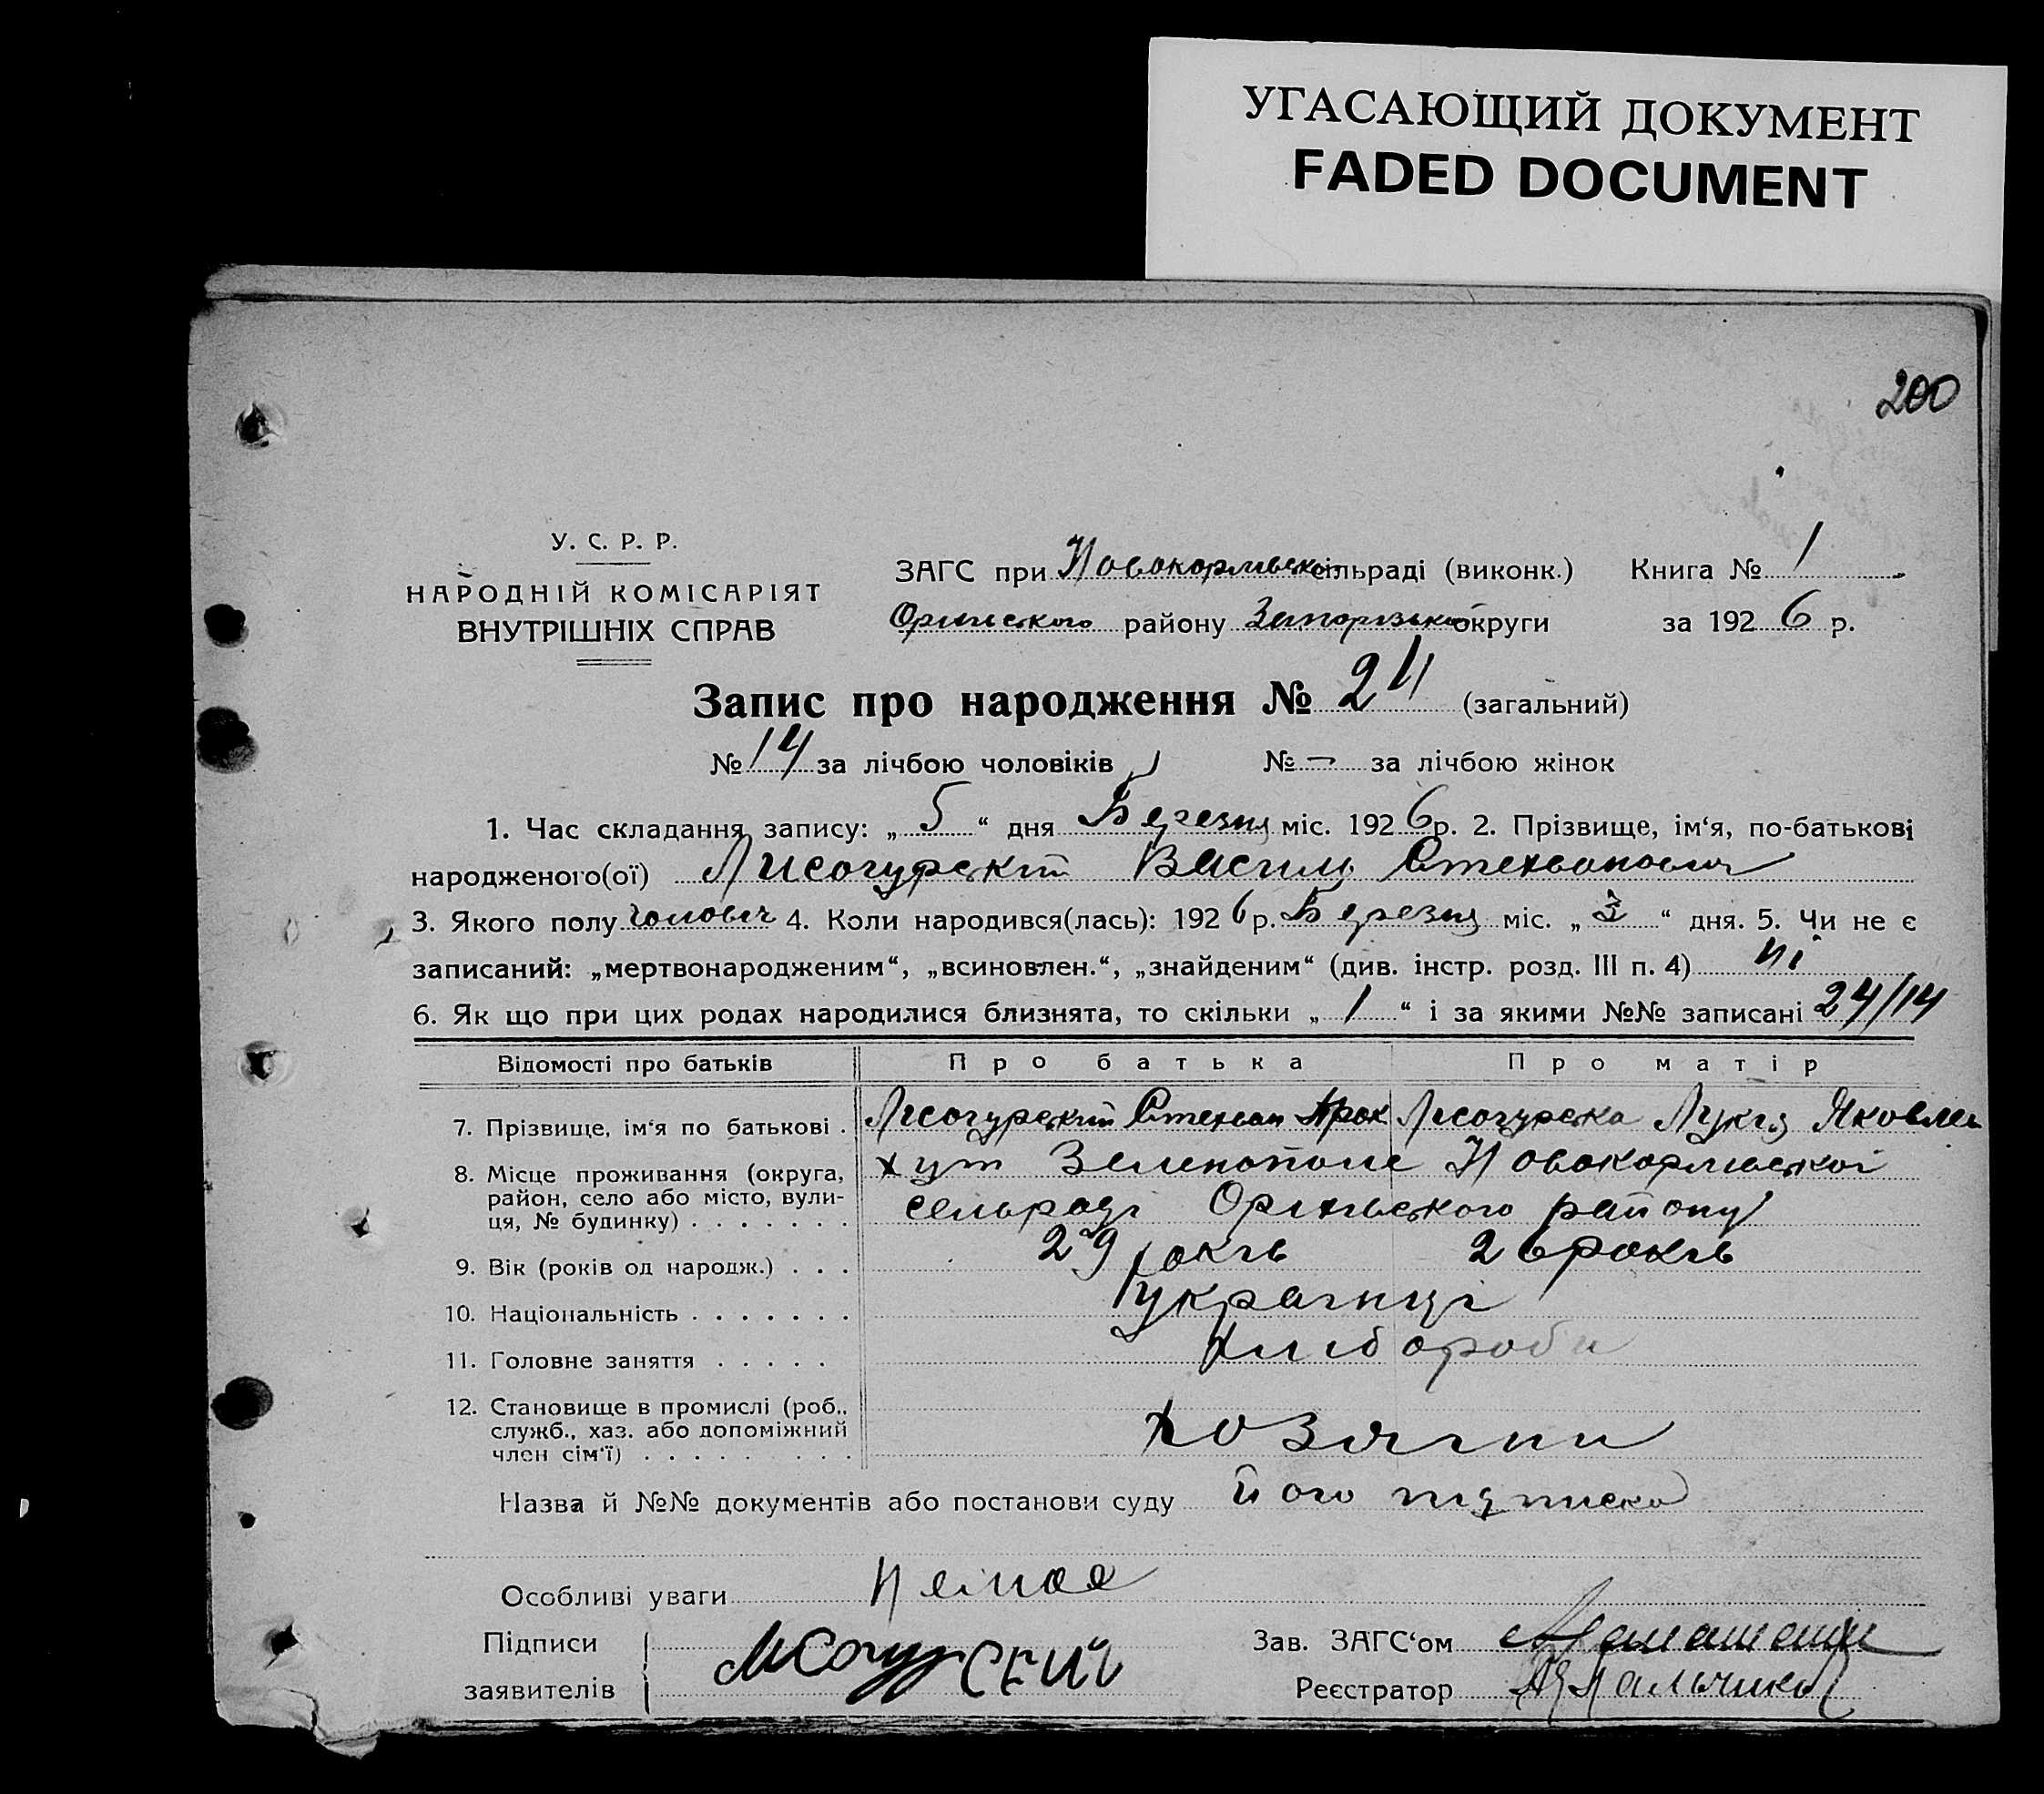 УГАСАЮЩИЙ ДОКУМЕНТ
FADED DOCUMENT
200
У. С. Р. Р.
НАРОДНІЙ КОМІСАРІЯТ
ВНУТРІШНІХ СПРАВ
ЗАГС при сільраді (виконк.) Книга № 1
району округи за 1926 р.
Запис про народження № 24 (загальний)
№ 14 за лічбою чоловіків № — за лічбою жінок
1. Час складання запису: „ 5 “ дня Березня міс. 1926 р. 2. Прізвище, ім‘я, по-батькові
народженого(ої) Лисогурскій Василь Стехванович
3. Якого полу чоловіч 4. Коли народився(лась): 1926 р. Березня міс. „ 3 “ дня. 5. Чи не є
записаний: „мертвонародженим“, „всиновлен.“, „знайденим“ (див. інстр. розд. III п. 4) ні
6. Як що при цих родах народилися близнята, то скільки „ 1 “ і за якими №№ записані 24/14
Відомості про батьків Про батька Про матір
7. Прізвище, ім‘я по батькові . Лісогурский Стехван Прок Лісогурска Лукія Яковлев
8. Місце проживання (округа, район, село або місто, вулиця, № будинку) . . . . . . . хут Зеленополе Новокарлівської
сельраді Оріхівського району
9. Вік (років од народж.) . . . 29 років 26 років
10. Національність . . . . . . . українці
11. Головне заняття . . . . . хлібороби
12. Становище в промислі (роб., служб., хаз. або допоміжний член сім‘ї) . . . . . . . . . хозяїни
Назва й №№ документів або постанови суду його підписка
Особливі уваги немає
Підписи Зав. ЗАГС‘ом
заявителів Лисогурский Реєстратор